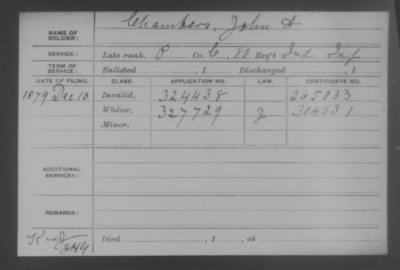 NAME OF SOLDIER: Chambers, John A
SERVICE: Late rank, P Co. C, 80 Reg't Ind Inf
TERM OF SERVICE: Enlisted , 1 Discharged , 1
DATE OF FILING. CLASS. APPLICATION NO. LAW. CERTIFICATE NO.
1879 Dec 10 Invalid, 324438 265033
Widow, 327729 304531
Minor,
ADDITIONAL SERVICES:
REMARKS:
Died , 1 , at